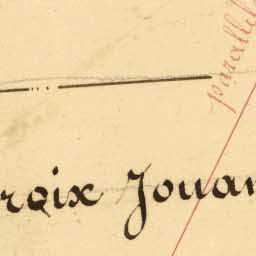 parallèl
roix Jouan